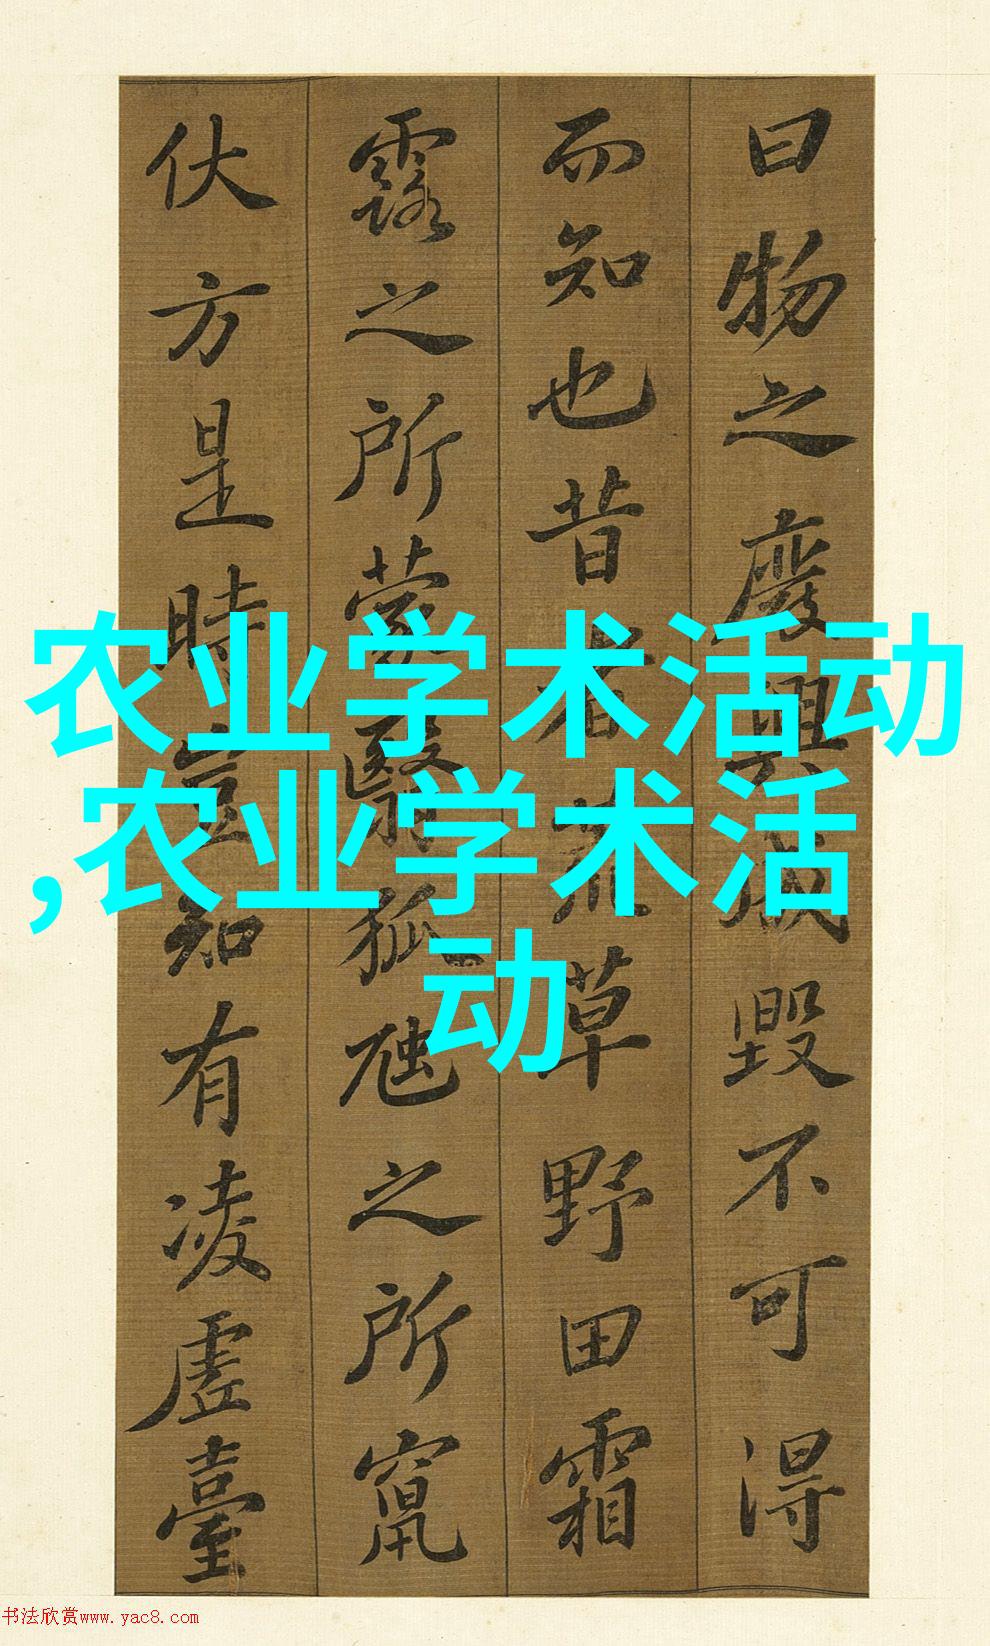 曰物之廢興成毀不可得
而知也昔者荒草野田霜
露之所蒙翳狐虺之所竄
伏方是時豈知有凌虛臺
农业学术活动
,农业学术活
动
书法欣赏www.yac8.com